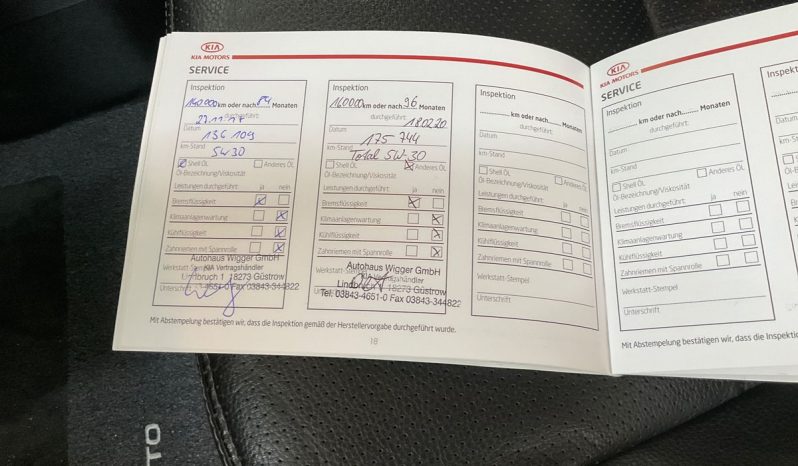 KIA
KIA MOTORS
SERVICE
Inspektion
140.000 km oder nach 84 Monaten
durchgeführt:
27.11.17
Datum
136 109
km-Stand
5W30
Shell ÖL Anderes ÖL
Öl-Bezeichnung/Viskosität
Leistungen durchgeführt: ja nein
Bremsflüssigkeit
Klimaanlagenwartung
Kühlflüssigkeit
Zahnriemen mit Spannrolle
Autohaus Wigger GmbH
Werkstatt-Stempel
KIA Vertragshändler
Lindbruch 1 18273 Güstrow
Unterschrift
4651-0 Fax 03843-344822
Inspektion
160000 km oder nach 96 Monaten
durchgeführt:
18.02.20
Datum
175 744
km-Stand
Total 5W-30
Shell ÖL Anderes ÖL
Öl-Bezeichnung/Viskosität
Leistungen durchgeführt: ja nein
Bremsflüssigkeit
Klimaanlagenwartung
Kühlflüssigkeit
Zahnriemen mit Spannrolle
Autohaus Wigger GmbH
Werkstatt-Stempel
Vertragshändler
Lindbruch 1 18273 Güstrow
Tel: 03843-4651-0 Fax 03843-344822
Inspektion
km oder nach Monaten
durchgeführt:
Datum
km-Stand
Shell ÖL Anderes ÖL
Öl-Bezeichnung/Viskosität
Leistungen durchgeführt: ja nein
Bremsflüssigkeit
Klimaanlagenwartung
Kühlflüssigkeit
Zahnriemen mit Spannrolle
Werkstatt-Stempel
Unterschrift
Mit Abstempelung bestätigen wir, dass die Inspektion gemäß der Herstellervorgabe durchgeführt wurde.
18
KIA
KIA MOTORS
SERVICE
Inspektion
km oder nach Monaten
durchgeführt:
Datum
km-Stand
Shell ÖL Anderes ÖL
Öl-Bezeichnung/Viskosität
Leistungen durchgeführt: ja nein
Bremsflüssigkeit
Klimaanlagenwartung
Kühlflüssigkeit
Zahnriemen mit Spannrolle
Werkstatt-Stempel
Unterschrift
Mit Abstempelung bestätigen wir, dass die Inspektion